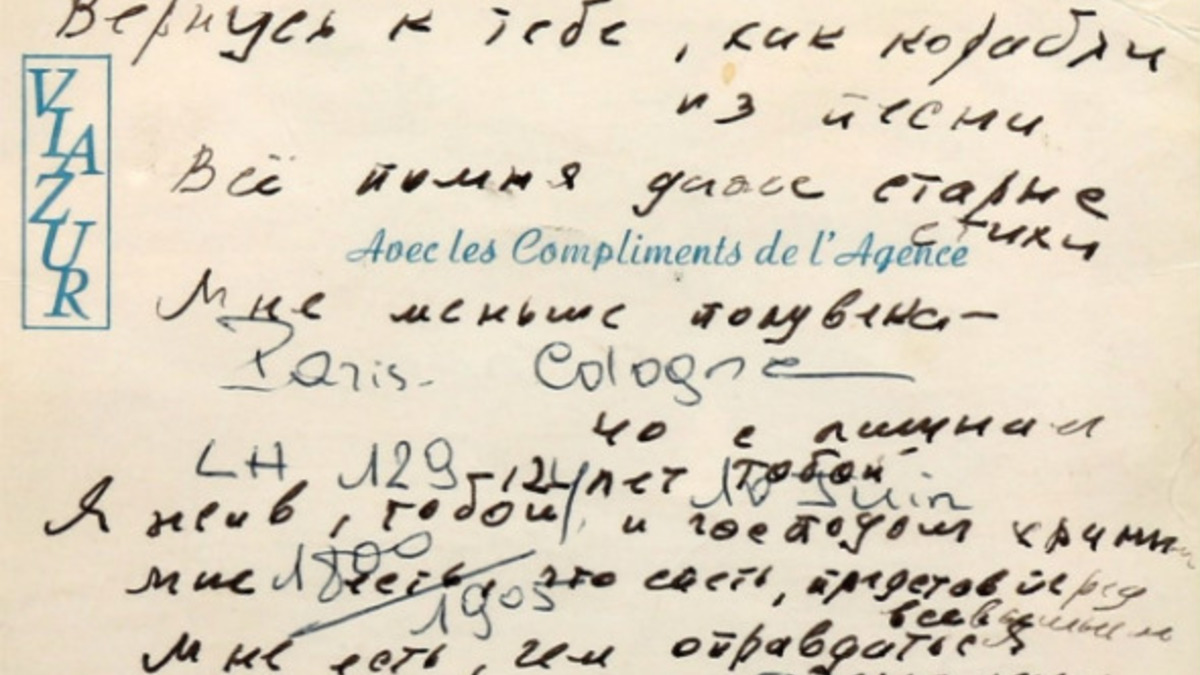 Вернусь к тебе, как корабли
из песни
VIAZUR
Всё помня даже старые
стихи
Avec les Compliments de l'Agence
Мне меньше полувека—
Paris - Cologne
но с лишним
LH 129 - 12 лет тобой 10 Juin
Я жив, тобой и господом храним
мне 1800 есть, что спеть, представ перед
1905 всевышним
Мне есть, чем оправдаться